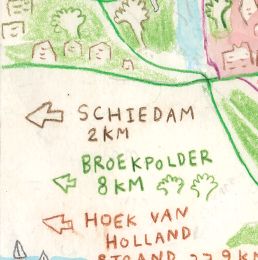 SCHIEDAM
2 KM
BROEKPOLDER
8 KM
HOEK VAN
HOLLAND
STRAND